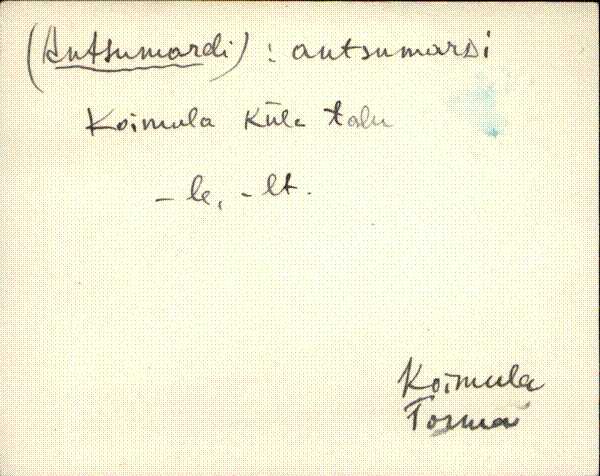 (Antsumardi) : antsumarDi
Koimula küla talu
– le, – lt.
Koimula
Torma